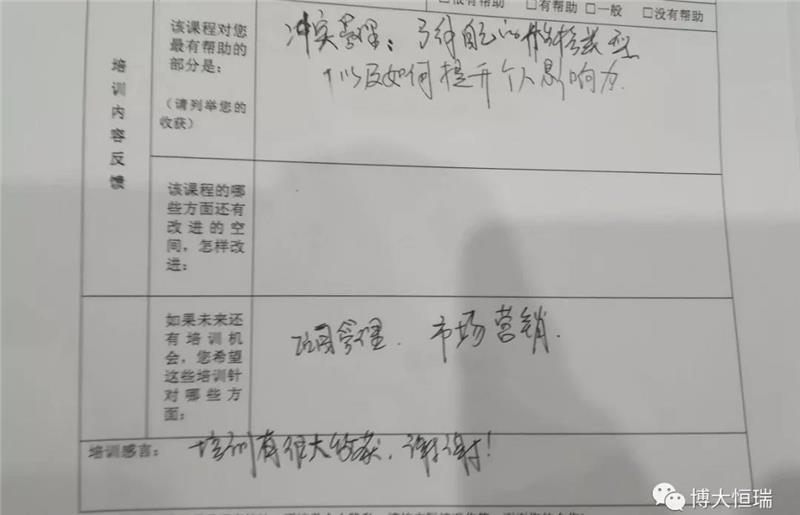 □很有帮助 □有帮助 □一般 □没有帮助
培训内容反馈
该课程对您
最有帮助的
部分是:
(请列举您的
收获)
冲突管理; 了解自己的性格类型
以及如何提升个人影响力
该课程的哪
些方面还有
改进的空
间,怎样改
进:
如果未来还
有培训机
会,您希望
这些培训针
对哪些方
面:
项目管理. 市场营销.
培训感言:
培训有很大收获,谢谢!
博大恒瑞